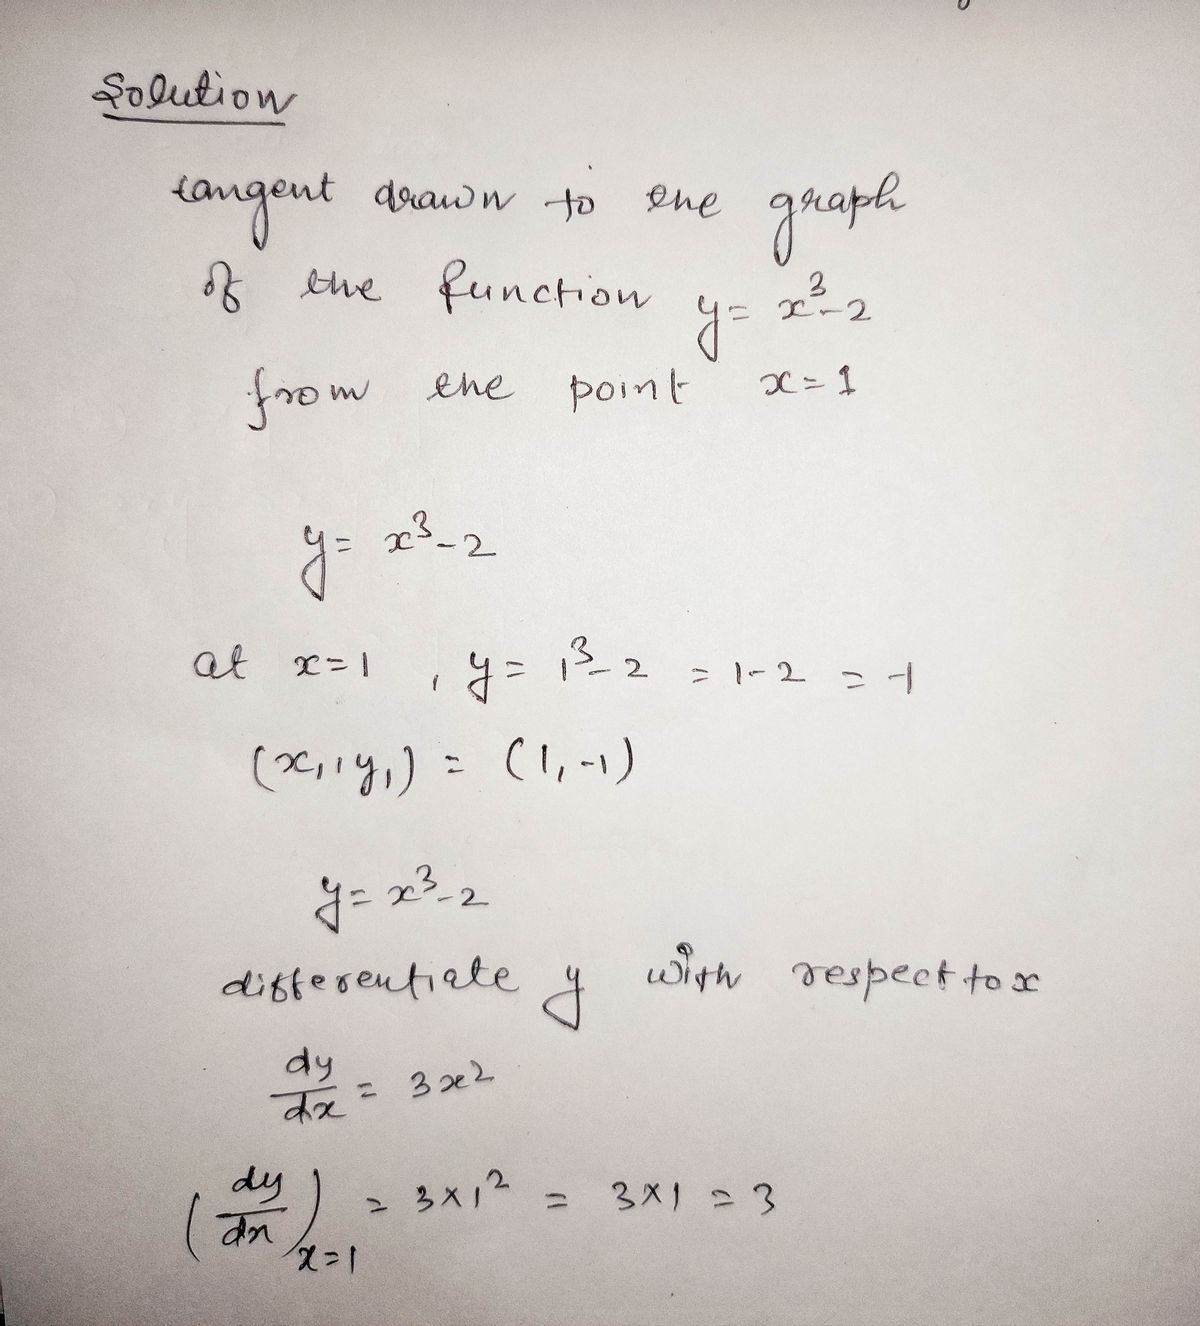 Solution
tangent drawn to the graph
of the function y = x³-2
from the point x = 1
y = x³-2
at x=1 , y = 1³-2 = 1-2 = -1
(x₁, y₁) = (1, -1)
y = x³-2
differentiate y with respect to x
dy/dx = 3x²
(dy/dx)ₓ₌₁ = 3×1² = 3×1 = 3